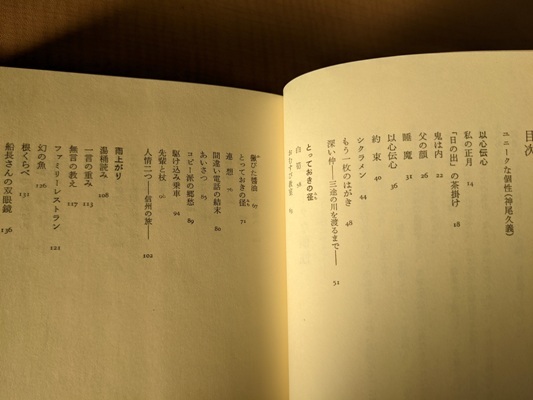 目次
ユニークな個性(神尾久義)
以心伝心
私の正月 14
「日の出」の茶掛け 18
鬼は内 22
父の顔 26
睡魔 31
以心伝心 36
約束 40
シクラメン 44
もう一枚のはがき 48
深い仲——三途の川を渡るまで—— 51
とっておきの径
白菊 58
とっておきの径 71
連想 76
間違い電話の結末 80
あいさつ 85
コピー派の郷愁 89
駆け込み乗車 94
先輩と杖
人情二つ——信州の旅—— 102
雨上がり
湯桶読み 108
一言の重み 113
無言の教え 117
ファミリーレストラン 121
幻の魚 126
根くらべ 131
船長さんの双眼鏡 136